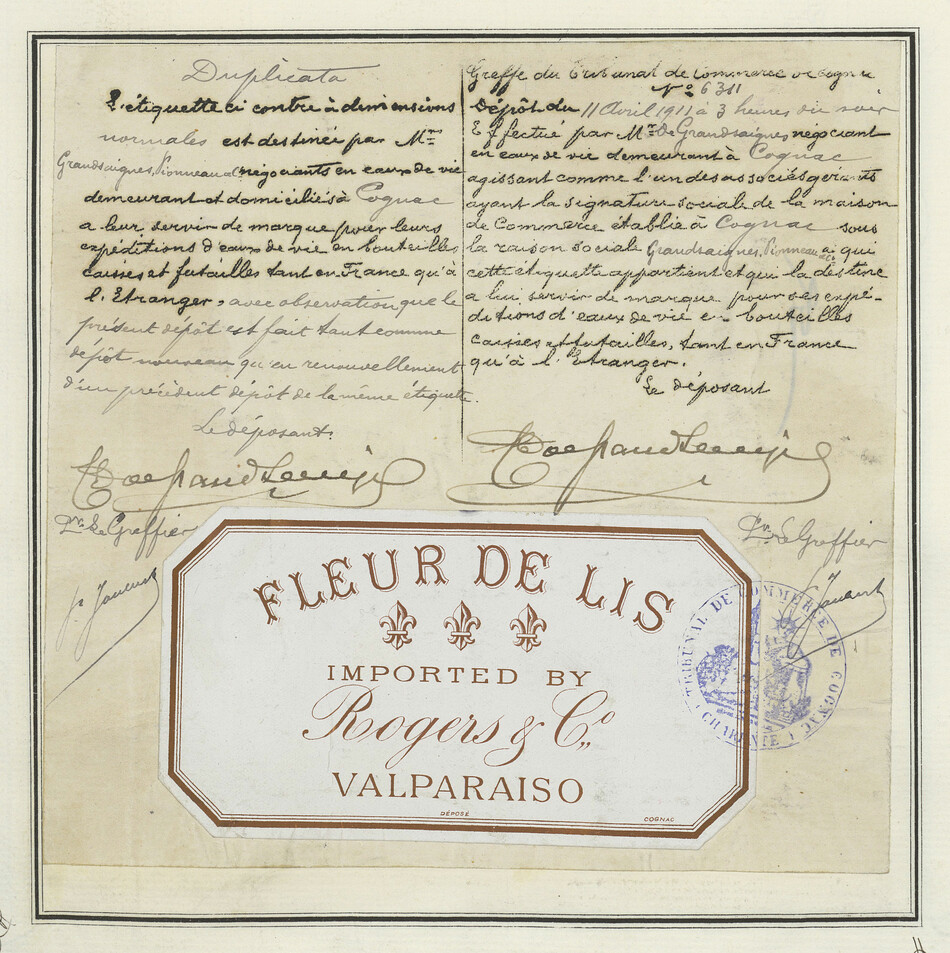 Duplicata
L'étiquette ci contre à dimensions
normales est destinée par Mrs
Grandsaignes, Pionneau & Co négociants en eaux de vie
demeurant et domiciliés à Cognac
a leur servir de marque pour leurs
expéditions d'eaux de vie en bouteilles
caisses et futailles tant en France qu'à
l'Etranger, avec observation que le
présent dépôt est fait tant comme
dépôt nouveau qu'en renouvellement
d'un précédent dépôt de la même étiquette.
Le déposant.
Pr. Le Greffier
Greffe du Tribunal de Commerce de Cognac
No 6311
Dépôt du 11 Avril 1911 à 3 heures du soir
Effectué par Mr de Grandsaignes négociant
en eaux de vie demeurant à Cognac
agissant comme l'un des associés gérants
ayant la signature sociale de la maison
de Commerce établie à Cognac sous
la raison sociale Grandsaignes, Pionneau & Co à qui
cette étiquette appartient et qui la destine
a lui servir de marque pour ses expé-
ditions d'eaux de vie en bouteilles
caisses et futailles, tant en France
qu'à l'Etranger.
Le déposant
Pr. Le Greffier
FLEUR DE LIS
IMPORTED BY
Rogers & Co.
VALPARAISO
DÉPOSÉ
COGNAC
TRIBUNAL DE COMMERCE DE COGNAC
(CHARENTE)